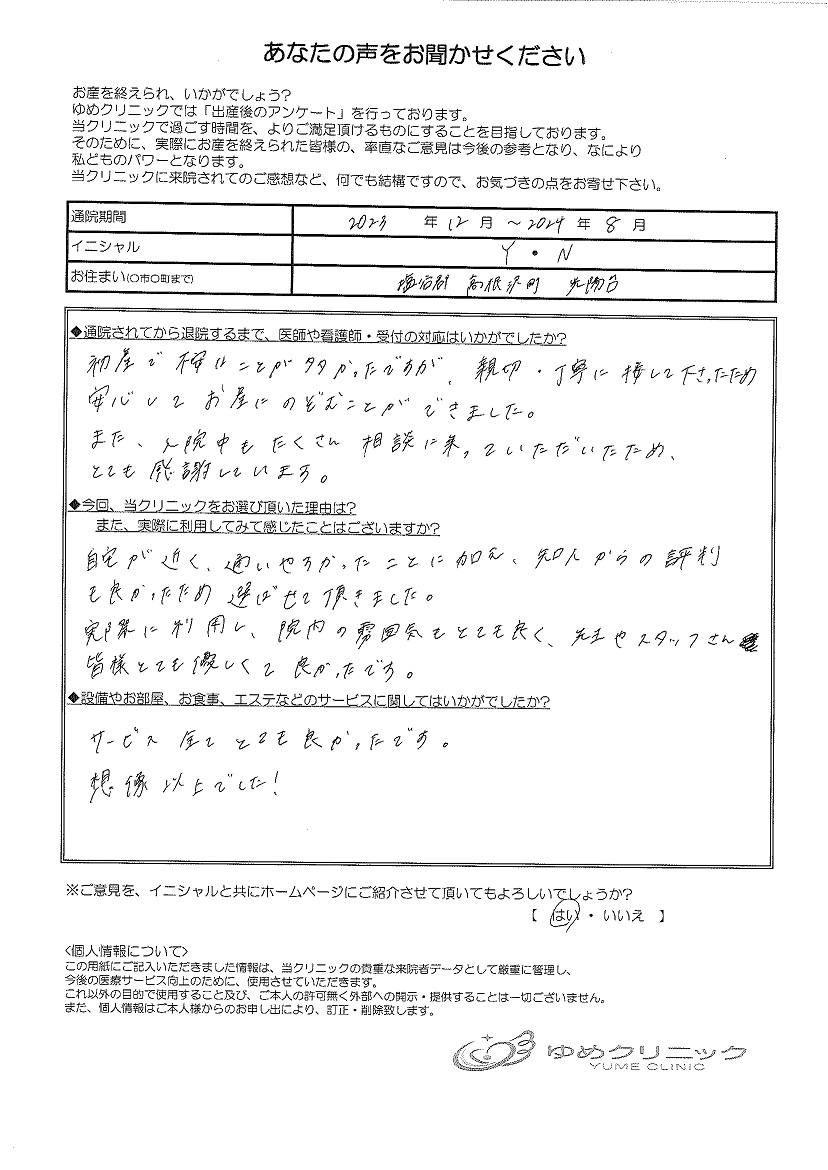 あなたの声をお聞かせください
お産を終えられ、いかがでしょう?
ゆめクリニックでは「出産後のアンケート」を行っております。
当クリニックで過ごす時間を、よりご満足頂けるものにすることを目指しております。
そのために、実際にお産を終えられた皆様の、率直なご意見は今後の参考となり、なにより
私どものパワーとなります。
当クリニックに来院されてのご感想など、何でも結構ですので、お気づきの点をお寄せ下さい。
通院期間 2023 年 12 月 ～ 2024 年 8 月
イニシャル Y・N
お住まい(〇市〇町まで) 塩谷郡 高根沢町 光陽台
◆通院されてから退院するまで、医師や看護師・受付の対応はいかがでしたか?
初産で不安なことが多かったですが、親切・丁寧に接して下さったため
安心してお産にのぞむことができました。
また、入院中もたくさん相談に乗っていただいたため、
とても感謝しています。
◆今回、当クリニックをお選び頂いた理由は?
また、実際に利用してみて感じたことはございますか?
自宅が近く、通いやすかったことに加え、知人からの評判
も良かったため選ばせて頂きました。
実際に利用し、院内の雰囲気もとても良く、先生やスタッフさん
皆様とても優しくて良かったです。
◆設備やお部屋、お食事、エステなどのサービスに関してはいかがでしたか?
サービス全てとても良かったです。
想像以上でした!
※ご意見を、イニシャルと共にホームページにご紹介させて頂いてもよろしいでしょうか?
【 はい ・ いいえ 】
<個人情報について>
この用紙にご記入いただきました情報は、当クリニックの貴重な来院者データとして厳重に管理し、
今後の医療サービス向上のために、使用させていただきます。
これ以外の目的で使用すること及び、ご本人の許可無く外部への開示・提供することは一切ございません。
また、個人情報はご本人様からのお申し出により、訂正・削除致します。
ゆめクリニック
YUME CLINIC